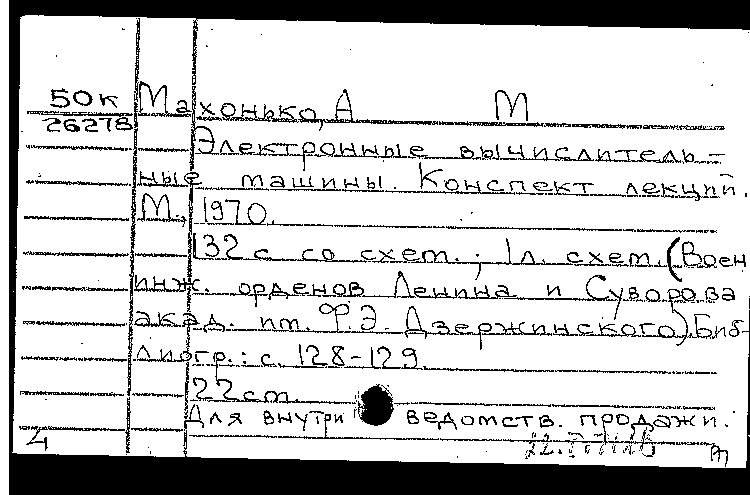 50к Махонько, А М
26278
Электронные вычислитель-
ные машины. Конспект лекций.
М., 1970.
132 с со схем.; 1 л. схем. (Воен
инж. орденов Ленина и Суворова
акад. им. Ф.Э. Дзержинского) Биб-
лиогр.: с. 128-129.
22 ст.
Для внутри ведомств. продажи.
4